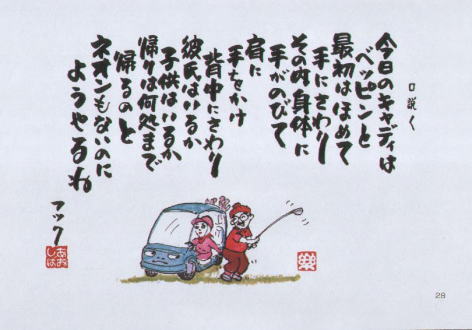 口説く
今日のキャディは
ベッピンと
最初はほめて
手にさわり
その内身体に
手がのびて
肩に
手をかけ
背中にさわり
彼氏はいるか
子供はいるか
帰りは何処まで
帰るのと
ネオンもないのに
ようやるね
マック
あおしば
楽
28